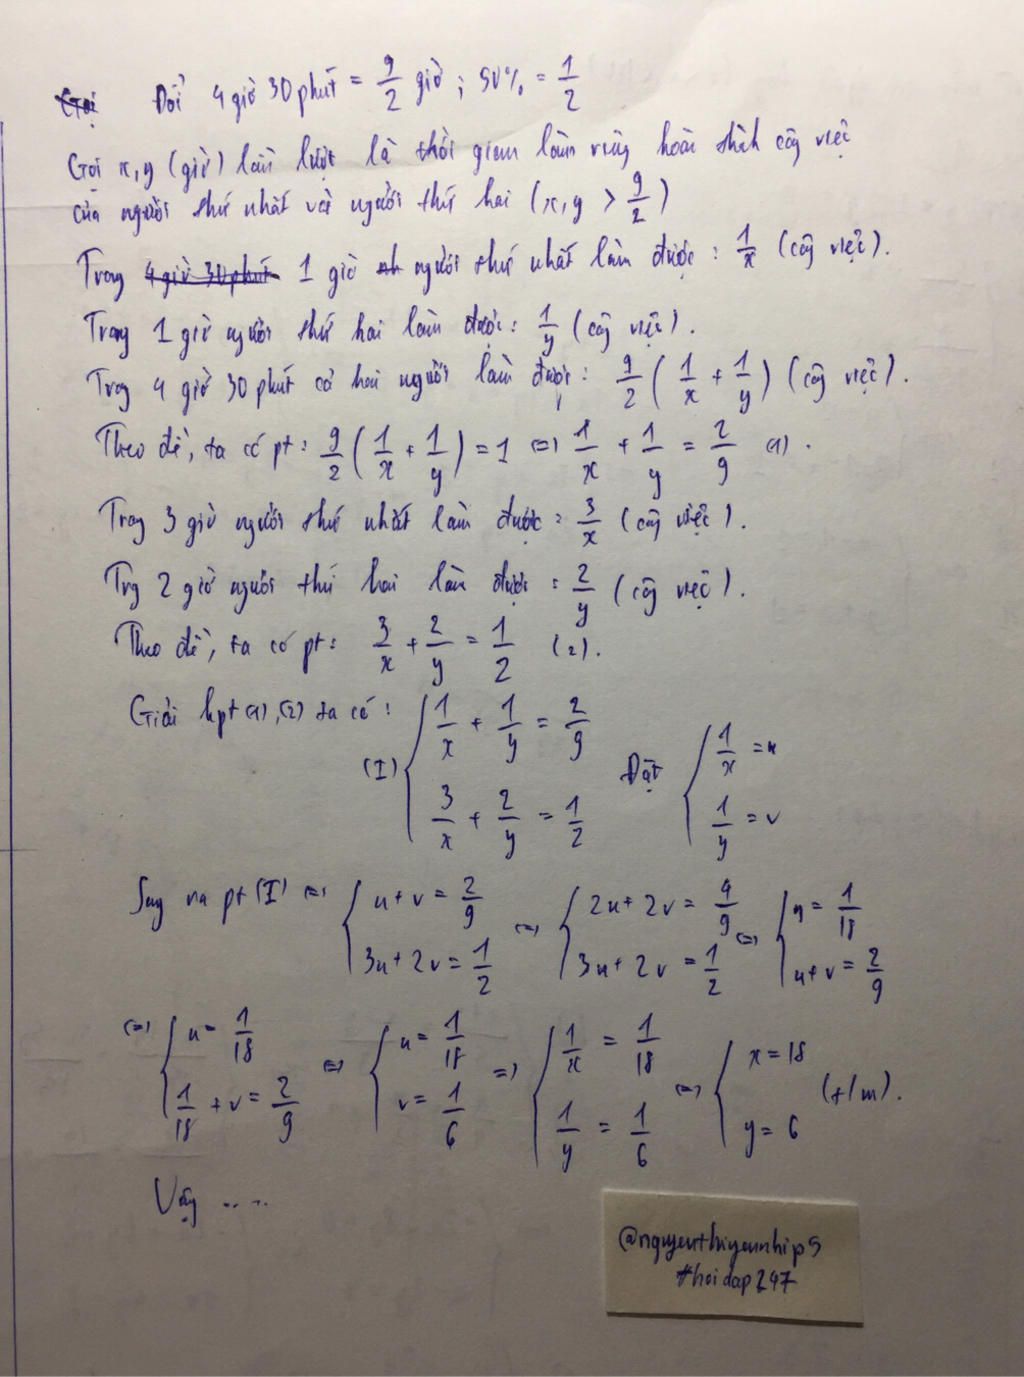 Gọi Đổi 4 giờ 30 phút = 9/2 giờ ; 50% = 1/2
Gọi x, y (giờ) lần lượt là thời gian làm riêng hoàn thành công việc
của người thứ nhất và người thứ hai (x, y > 9/2)
Trong 4 giờ 30 phút 1 giờ nh người thứ nhất làm được : 1/x (công việc).
Trong 1 giờ người thứ hai làm được : 1/y (công việc).
Trong 4 giờ 30 phút cả hai người làm được : 9/2 (1/x + 1/y) (công việc).
Theo đề, ta có pt : 9/2 (1/x + 1/y) = 1 <=> 1/x + 1/y = 2/9 (1).
Trong 3 giờ người thứ nhất làm được : 3/x (công việc).
Trng 2 giờ người thứ hai làm được : 2/y (công việc).
Theo đề, ta có pt : 3/x + 2/y = 1/2 (2).
Giải hpt (1), (2) ta có :
(I) { 1/x + 1/y = 2/9
3/x + 2/y = 1/2
Đặt { 1/x = u
1/y = v
Suy ra pt (I) <=> { u + v = 2/9
3u + 2v = 1/2
<=> { 2u + 2v = 4/9
3u + 2v = 1/2
<=> { u = 1/18
u + v = 2/9
<=> { u = 1/18
1/18 + v = 2/9
<=> { u = 1/18
v = 1/6
=> { 1/x = 1/18
1/y = 1/6
<=> { x = 18
y = 6
(t/m).
Vậy .....
@nguyenthiyennhip5
#hoidap247